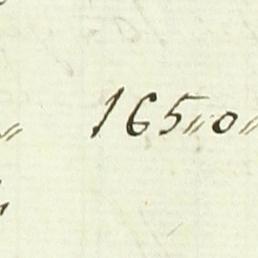 165 " 0 "